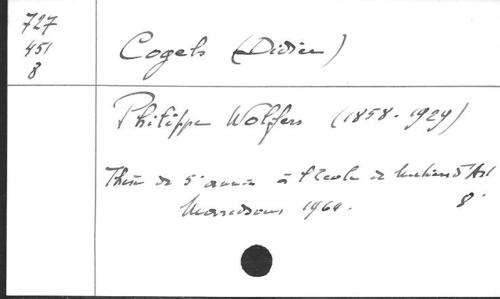 727
451
8
Cogels (Didier)
Philippe Wolfers (1858-1929)
Thèse de 5e année à l'Ecole de Métiers d'Art
Maredsous 1960. 8°